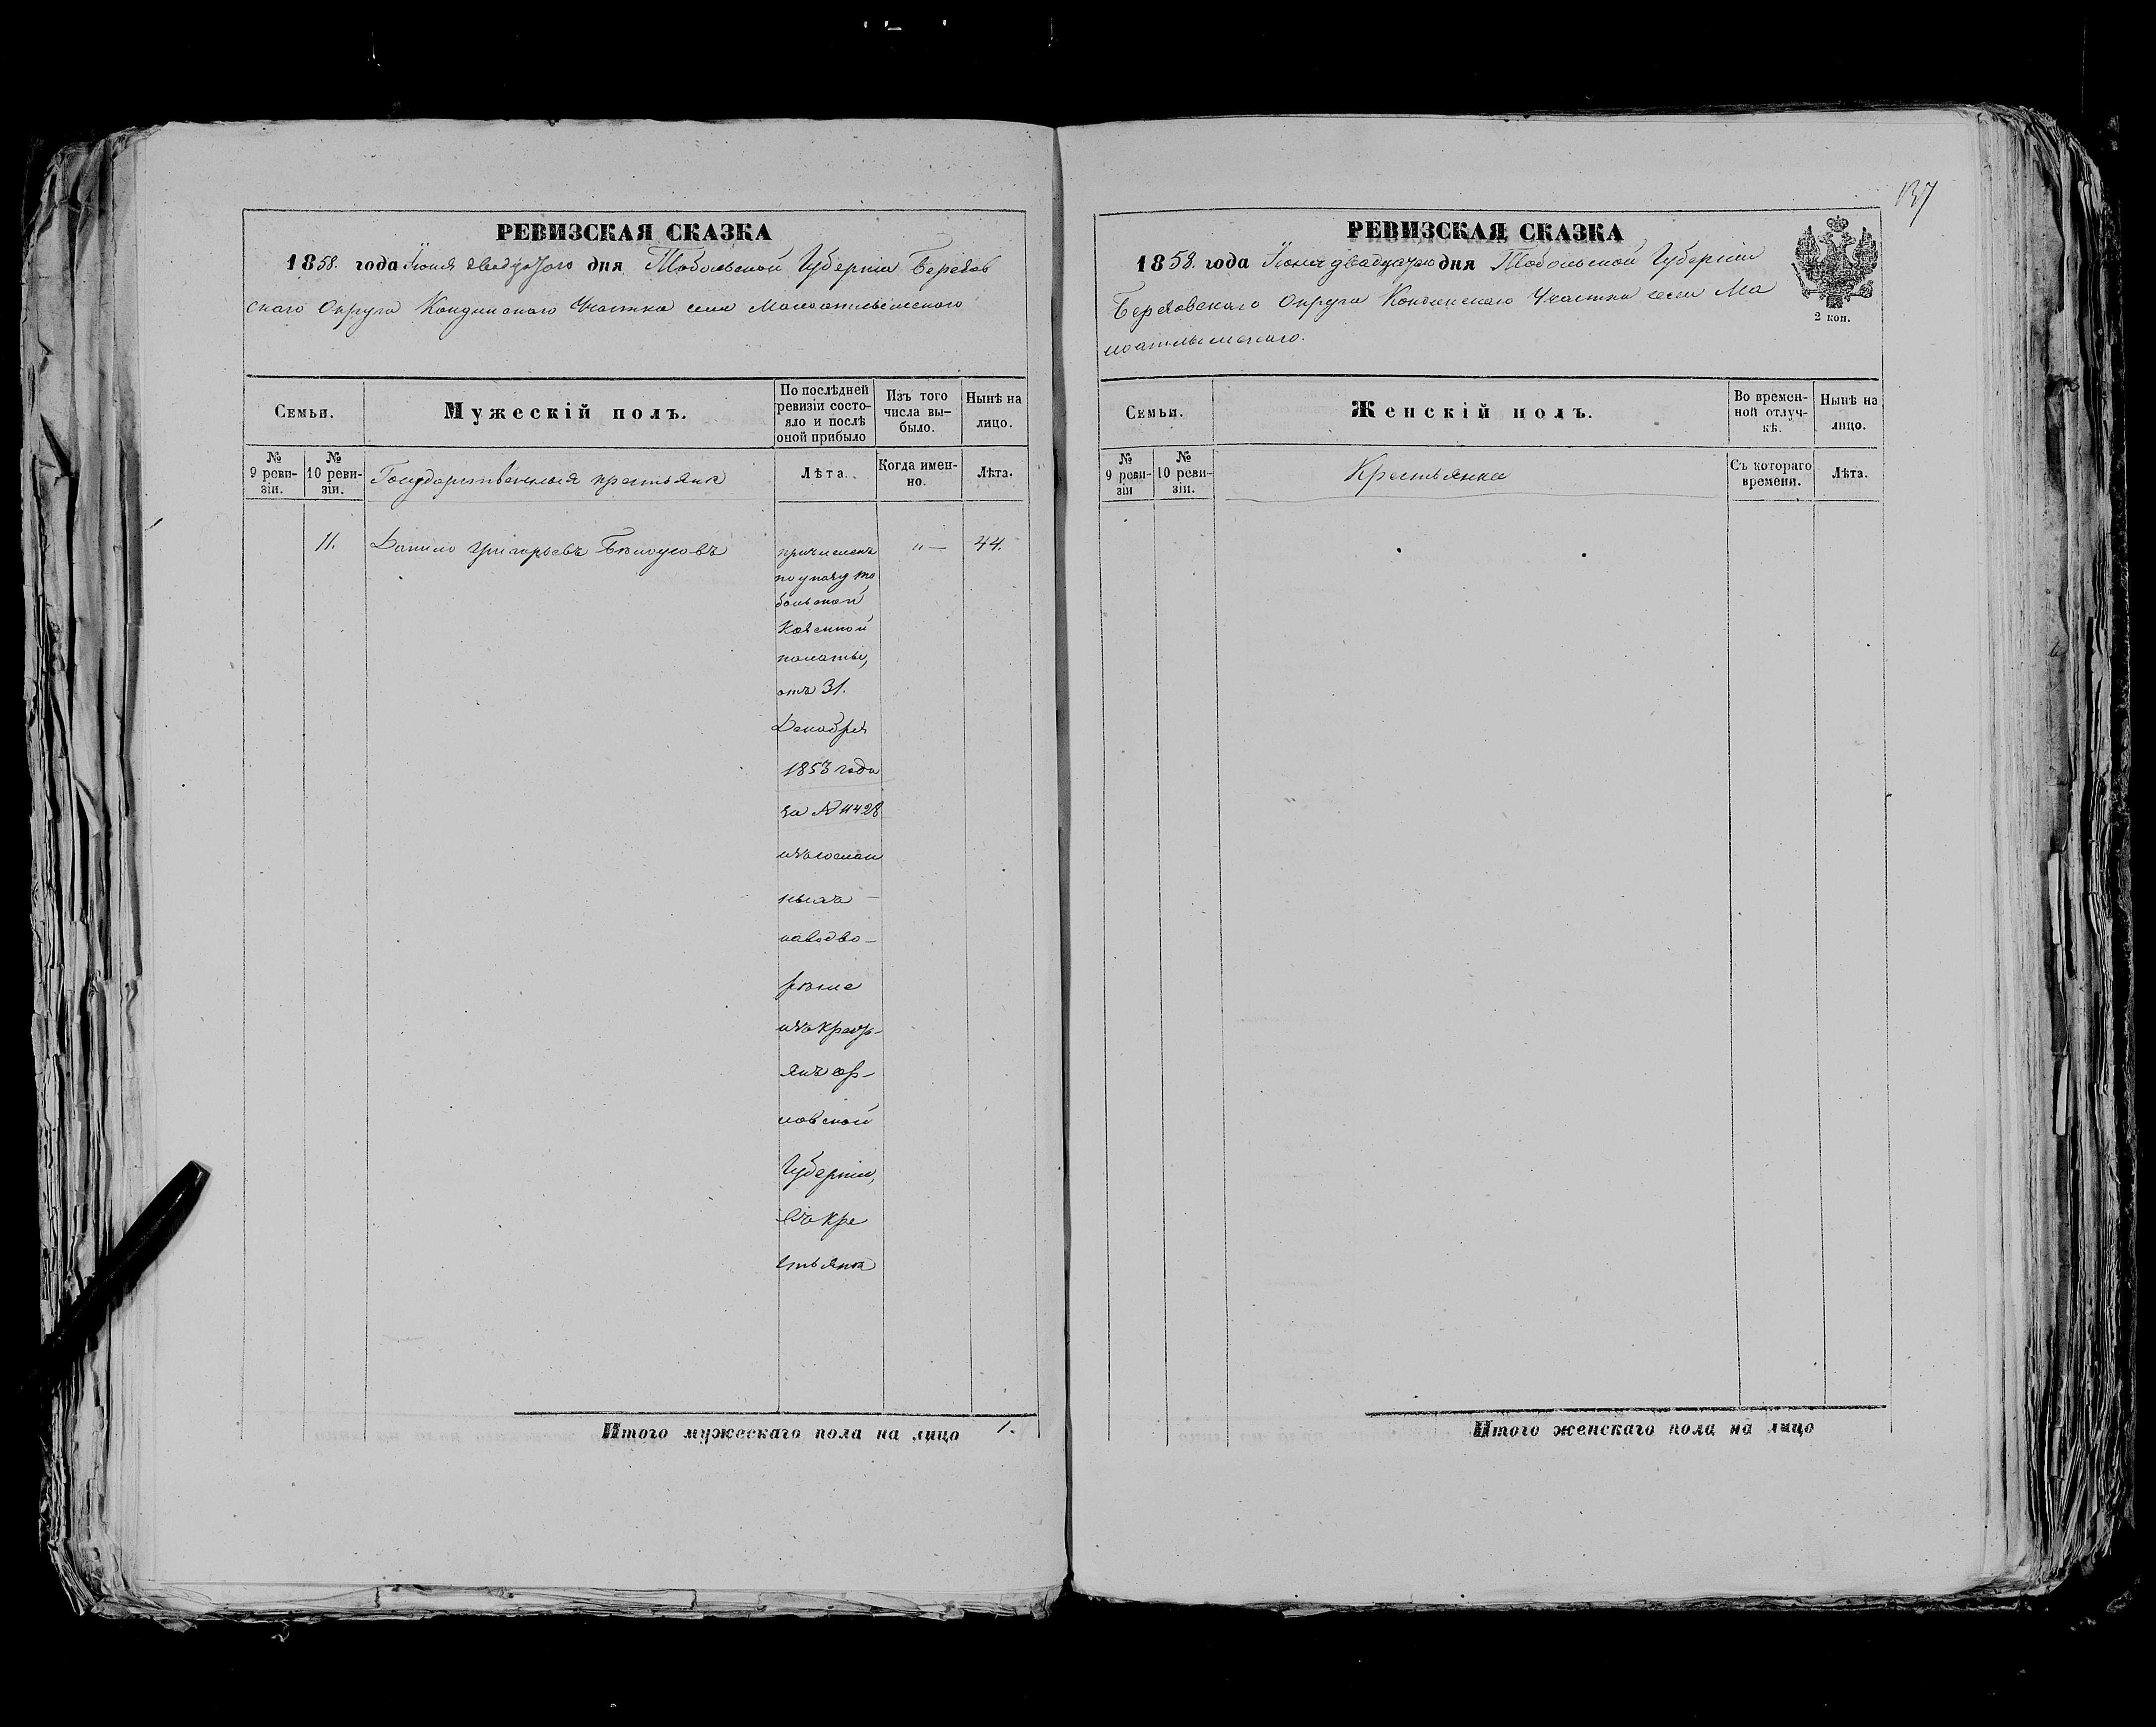 РЕВИЗСКАЯ СКАЗКА
1858. года Іюня двадцатого дня Тобольской Губерніи Березов
скаго Округа Кондинскаго Участка села Малоатлымскаго
Семьи.
Мужескій полъ.
По послѣдней
ревизіи состо-
яло и послѣ
оной прибыло
Изъ того
числа вы-
было.
Нынѣ на
лицо.
№
9 реви-
зіи.
№
10 реви-
зіи.
Государственныя крестьяне
Лѣта.
Когда имен-
но.
Лѣта.
11.
Данило Григорьевъ Бѣлоусовъ
причисленъ
по указу то
больской
Казенной
палаты,
отъ 31.
Декабря
1853 года
за № 11428
изъ сослан
ныхъ —
наводво —
реніе
изъ кресть-
янъ ор-
ловской
Губерніи,
въ кре
стьяне
" —
44.
Итого мужескаго пола на лицо 1.
137
РЕВИЗСКАЯ СКАЗКА
1858. года Іюня двадцатого дня Тобольской Губерніи
Березовскаго Округа Кондинскаго Участка села Ма
лоатлымскаго.
2 коп.
Семьи.
Женскій полъ.
Во времен-
ной отлуч-
кѣ.
Нынѣ на
лицо.
№
9 реви-
зіи
№
10 реви-
зіи.
Крестьянки
Съ котораго
времени.
Лѣта.
Итого женскаго пола на лицо